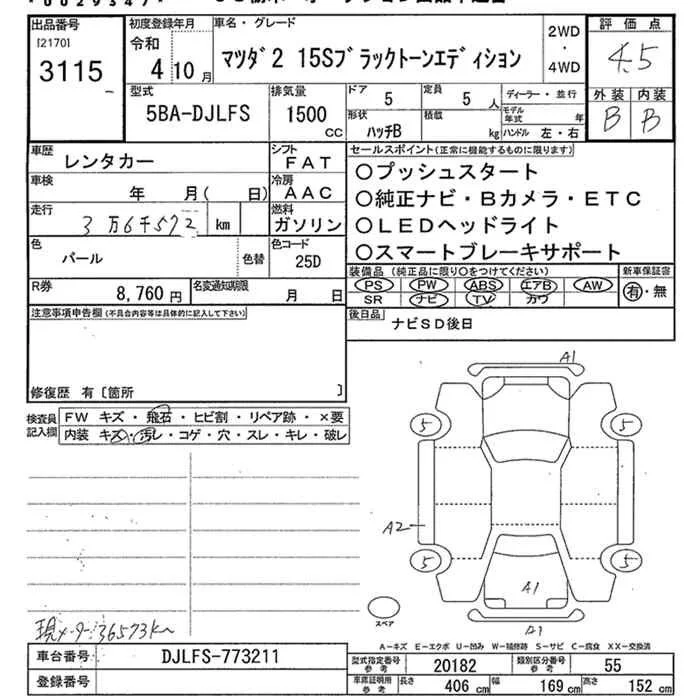 出品番号 初度登録年月 車名・グレード 2WD ・ 4WD 評価点
[2170] 3115 令和 4年10月 マツダ2 15Sブラックトーンエディション 4.5
型式 5BA-DJLFS 排気量 1500 CC ドア 5 定員 5人 ディーラー・並行 外装 内装
形状 ハッチB 積載 kg モデル年式 年 ハンドル 左・右 B B
車歴 レンタカー シフト FAT セールスポイント(正常に機能するものに限ります)
○プッシュスタート
車検 年 月( 日) 冷房 AAC ○純正ナビ・Bカメラ・ETC
走行 3万6千572 km 燃料 ガソリン ○LEDヘッドライト
色 パール 色替 色コード 25D ○スマートブレーキサポート
装備品(純正品に限り○をつけてください) 新車保証書
R券 8,760円 名変通知期限 月 日 PS PW ABS エアB AW 有・無
SR ナビ TV カワ
注意事項申告欄(不具合内容等は具体的に記入して下さい) 後日品 ナビSD後日
修復歴 有〔箇所 〕
検査員記入欄 FW キズ・飛石・ヒビ割・リペア跡・×要
内装 キズ・汚レ・コゲ・穴・スレ・キレ・破レ
A1
5 5
A2
5 5
A1
スペア
A1
現メーター36573km
A-キズ E-エクボ U-凹み W-補修跡 S-サビ C-腐食 XX-交換済
車台番号 DJLFS-773211 型式指定番号 参考 20182 類別区分番号 参考 55
登録番号 車庫証明用 参考 長さ 406 cm 幅 169 cm 高さ 152 cm